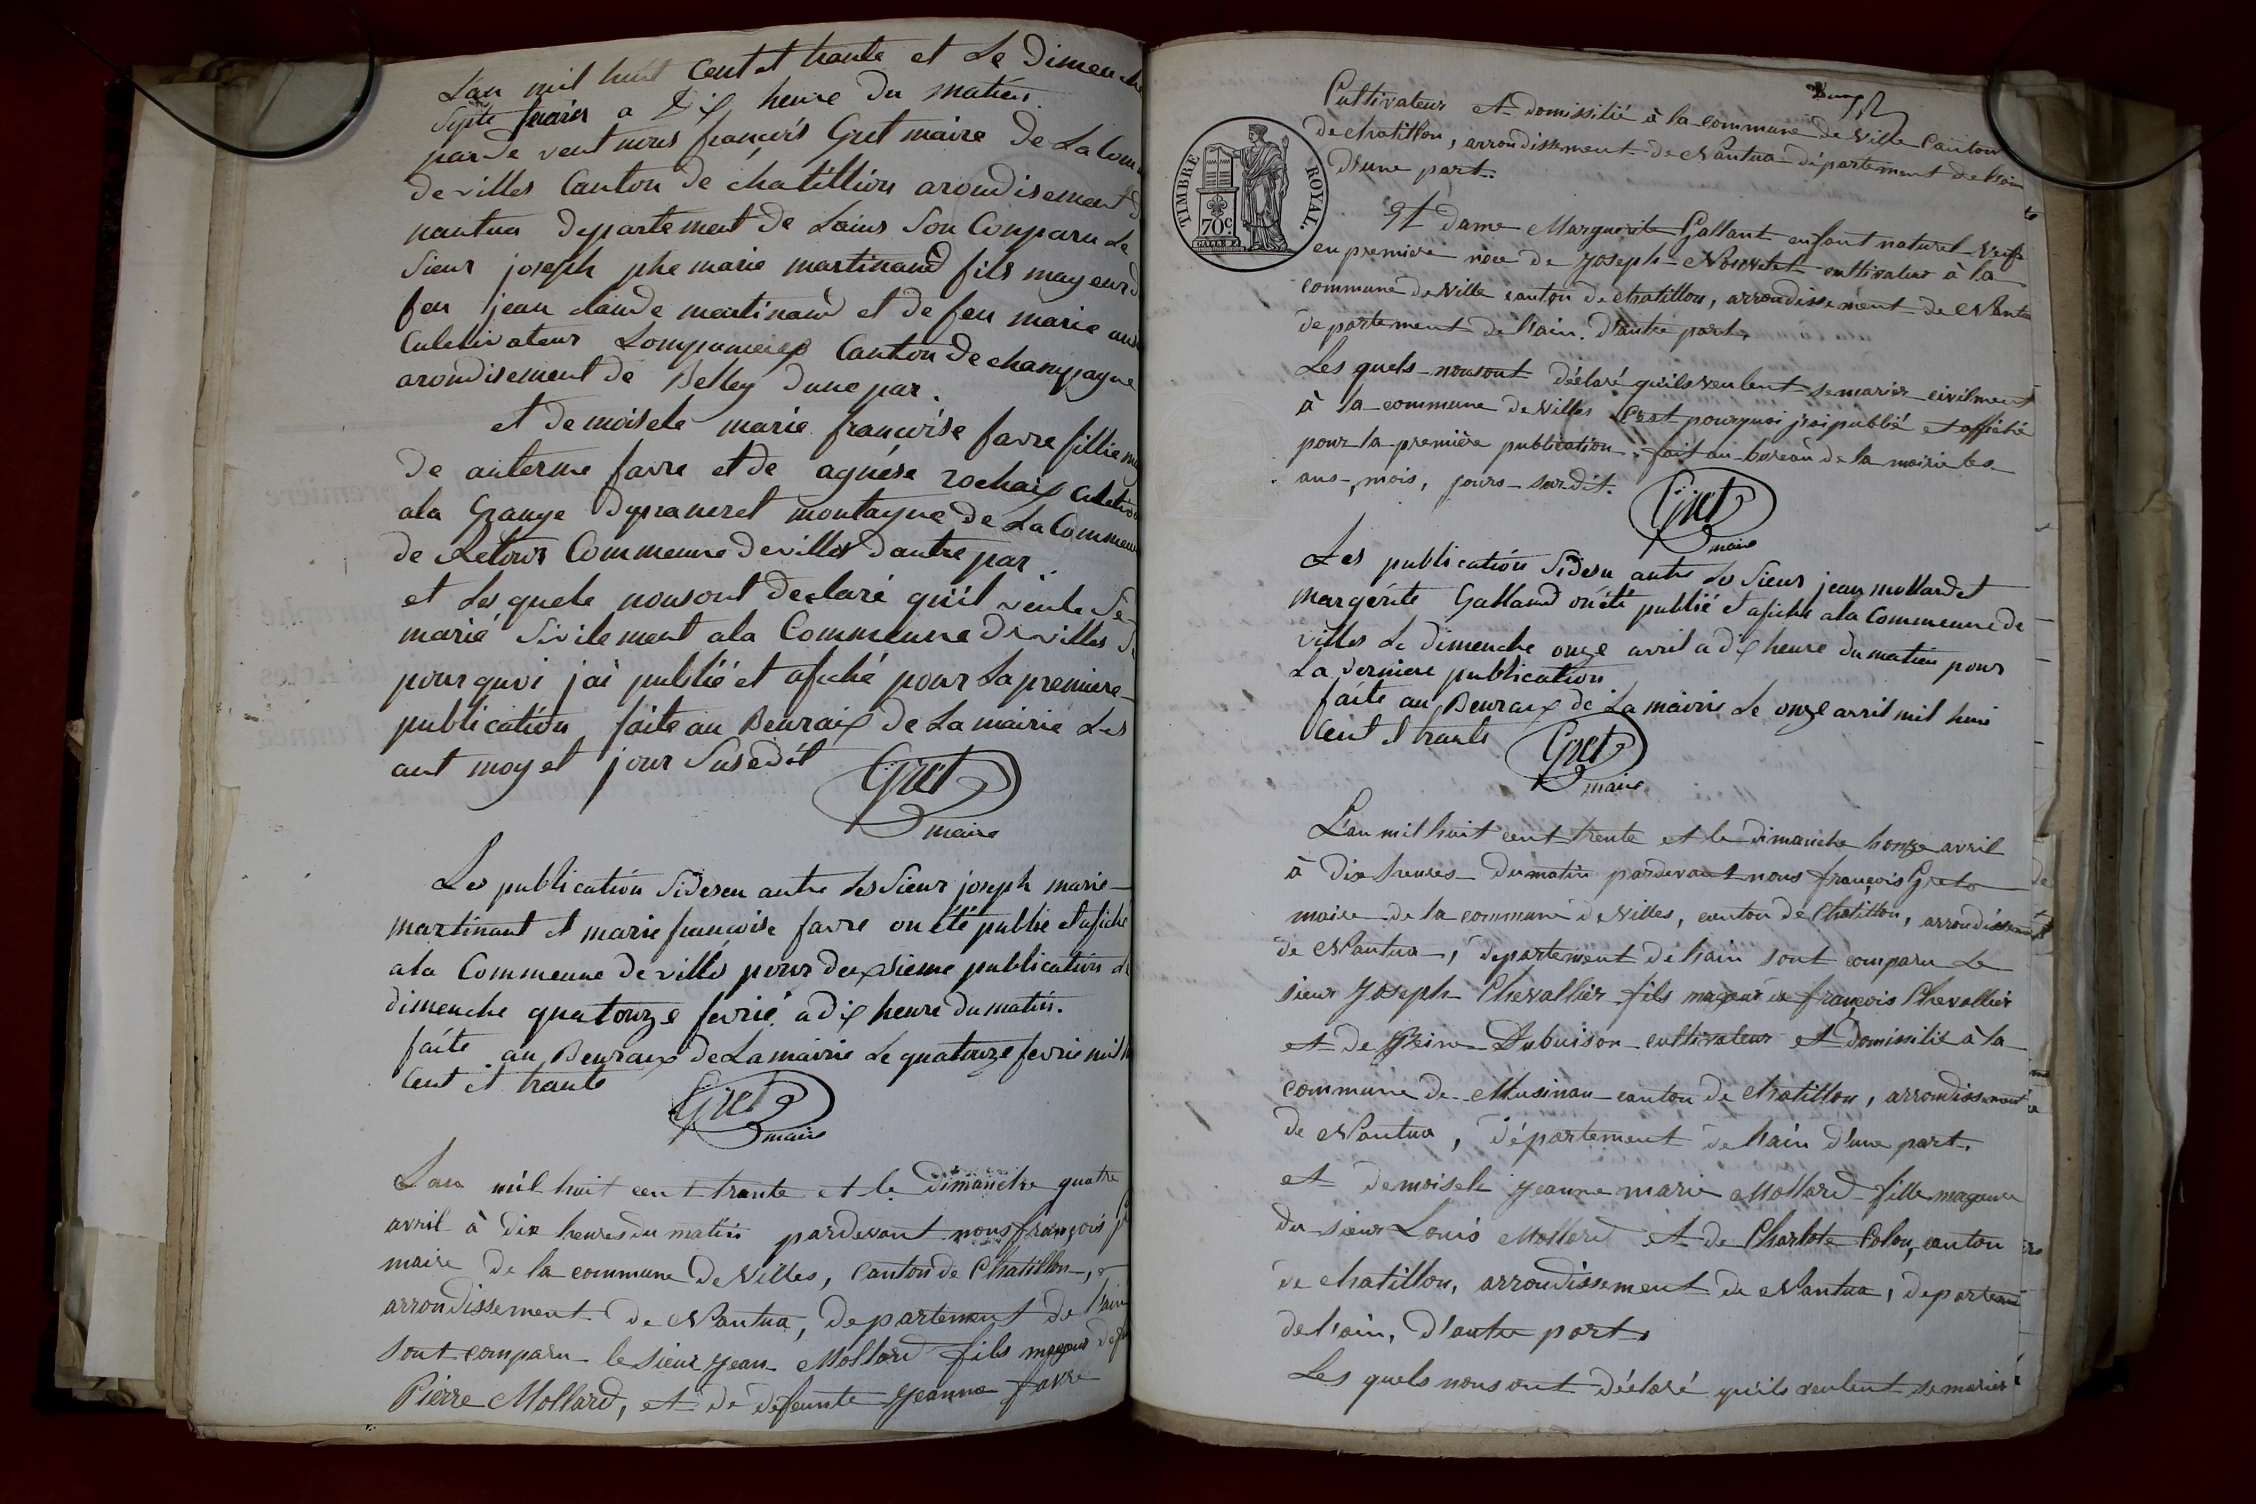 L'an mil huit cent et trante et Le Dimenche
Sypte fevrier a Dix heure Du matien
parde vent nous françois Gret maire De La Com
de villes Canton de châtillion arondisement D
nantua departement De Loins Son Conparu Le
Sieur joseph phe marie martinand fils mayeur d
feu jean claude martinand et de feu marie
Culetivateur Canton De champagne
arondisement de Belley Dune par.
et Demoisele marie françoise favre fillie m
De anterme favre et de agnése rochaix
ala Grange montagne De La Commeu
de Retours Commeune De villes Dautre par.
et Les quele nousont Declaré qu'il veule Se
marié Sivilement ala Commeune De villes
pour quoi j'ai publié et afiché pour La premiere
publication faite au Beuraix de La mairie Les
ant moy et jour Susedit
Gret
maire
Les publication Sideseu autre Les Sieur joseph marie
martinant et marie françoise favre on été publié et afiché
ala Commeune De villes pour deuxsieme publication
dimenche quatourze fevrié a dix heure Du matin.
faite au Beuraix De La mairie Le quatourze fevrie mil
Cent et trante
Gret
maire
L'an mil huit cent trante et le Dimanche quatre
avril à dix heures du matin pardevant nous françois
maire de la commune De Villes, Canton de Chatillon,
arrondissement de Nantua, Departement de l'ain
Sont comparu le sieur Jean Mollard fils mageur
Pierre Mollard, et de defeunte Jeanne favre
Cultivateur et domissilié à la commune de Ville Canton
de chatillon, arrondissement de Nantua département de l'ain
d'une part.
TIMBRE ROYAL.
70c.
Et dame Marguerite Gallant enfant naturel
en première noce de Joseph cultivateur à la
commune de Ville canton de chatillon, arrondissement de Nantua
departement de l'ain. D'autre part.
Les quels nousont déclaré qu'ils veulent se marier civilment
à la commune de Villes C'est pourquoi j'ai publié et affiché
pour la première publication. fait au bureau de la mairie les
ans, mois, jours sus dit.
Gret
maire
Les publication Sidesu autre Les Sieur jean mollard et
margérite Galland on été publié et afiché ala Commeune de
villes Le dimenche onze avril a dix heure du matien pour
La derniere publication
faite au Beuraix de La mairie Le onze avril mil huit
Cent et trante
Gret
maire
L'an mil huit cent trente et le dimanche honze avril
à dix heures du matin pardevant nous françois Gret
maire de la commune de Villes, canton de Chatillon, arrondissement
de Nantua, departement de l'ain sont comparu Le
sieur Joseph Chevallier fils mageur de françois Chevallier
et de Reine Dubuison cultivateur et domissilié à la
commune de Musinau canton de chatillon, arrondissement
de Nantua, département de l'ain d'une part.
et demoisele Jeanne marie Mollard fille mageure
du sieur Louis Mollard et de Charlote Colon, canton
de chatillon, arrondissement de Nantua, departement
de l'ain, d'autre part.
Les quels nous ont déclaré qu'ils veulent se marier